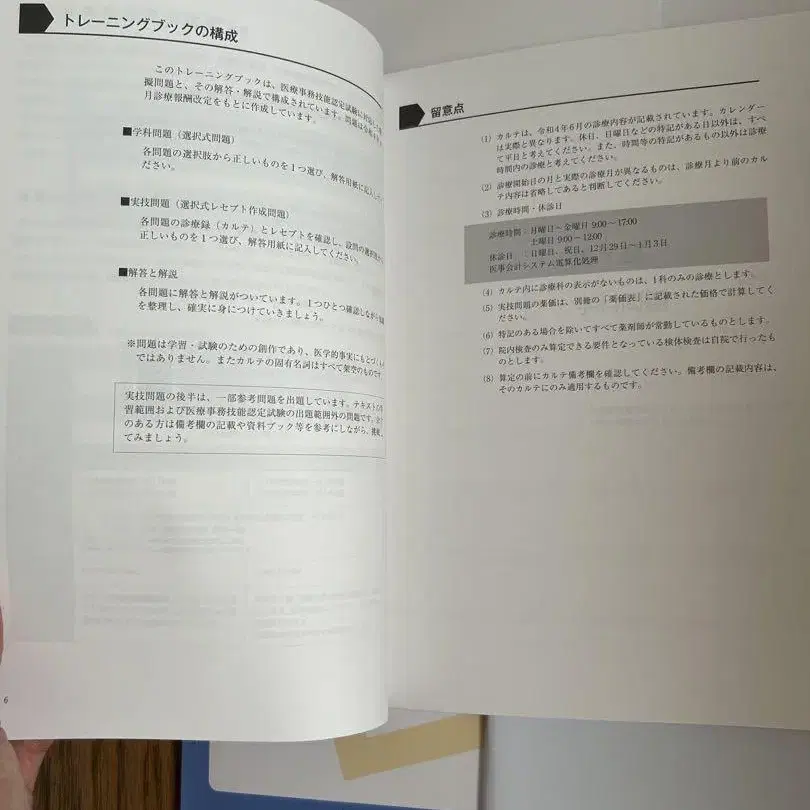 トレーニングブックの構成
このトレーニングブックは、医療事務技能認定試験に対応した模
擬問題と、その解答・解説で構成されています。問題は令和4年
月診療報酬改定をもとに作成しています。
■学科問題（選択式問題）
各問題の選択肢から正しいものを1つ選び、解答用紙に記入して
ださい。
■実技問題（選択式レセプト作成問題）
各問題の診療録（カルテ）とレセプトを確認し、設問の選択肢から
正しいものを1つ選び、解答用紙に記入してください。
■解答と解説
各問題に解答と解説がついています。1つひとつ確認しながら
を整理し、確実に身につけていきましょう。
※問題は学習・試験のための創作であり、医学的事実にもとづ
ではありません。またカルテの固有名詞はすべて架空のものです。
実技問題の後半は、一部参考問題を出題しています。テキストの
習範囲および医療事務技能認定試験の出題範囲外の問題です。
のある方は備考欄の記載や資料ブック等を参考にしながら、挑戦し
てみましょう。
6
留意点
(1) カルテは、令和4年6月の診療内容が記載されています。カレンダー
は実際と異なります。休日、日曜日などの特記がある日以外は、すべ
て平日と考えてください。また、時間等の特記があるもの以外は診療
時間内の診療と考えてください。
(2) 診療開始日の月と実際の診療月が異なるものは、診療月より前のカル
テ内容は省略してあると判断してください。
(3) 診療時間・休診日
診療時間：月曜日～金曜日 9:00～17:00
土曜日 9:00～12:00
休診日　：日曜日、祝日、12月29日～1月3日
医事会計システム電算化処理
(4) カルテ内に診療科の表示がないものは、1科のみの診療とします。
(5) 実技問題の薬価は、別冊の「薬価表」に記載された価格で計算してく
ださい。
(6) 特記のある場合を除いてすべて薬剤師が常勤しているものとします。
(7) 院内検査のみ算定できる要件となっている検体検査は自院で行ったも
のとします。
(8) 算定の前にカルテ備考欄を確認してください。備考欄の記載内容は、
そのカルテにのみ適用するものです。